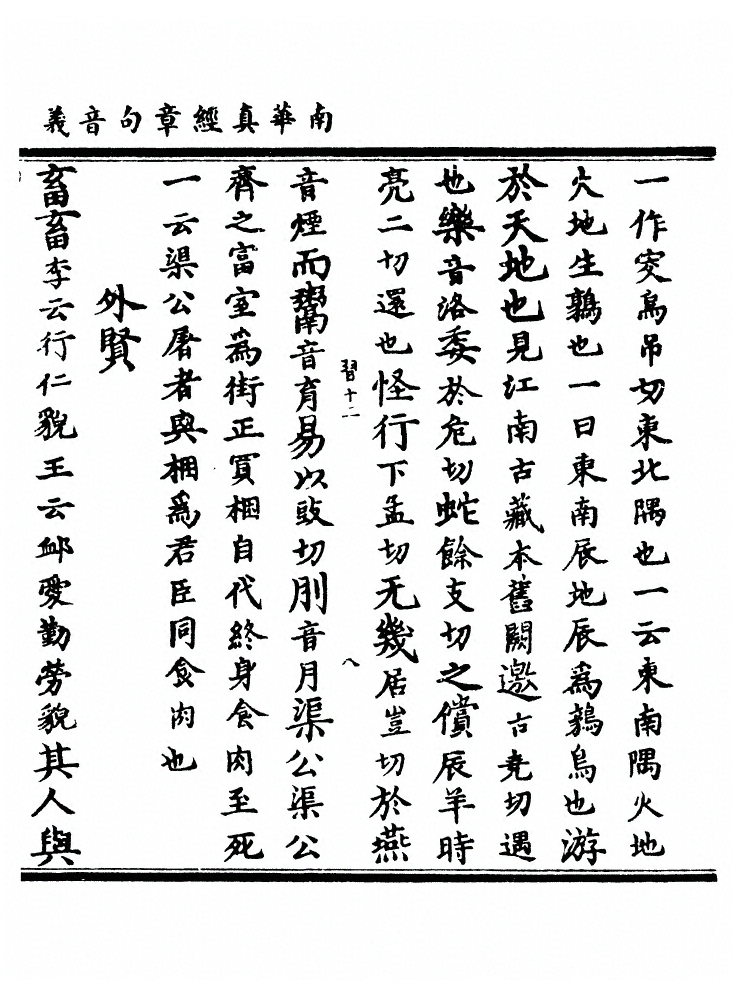 南華真經章句音義
一作突烏吊切東北隅也一云東南隅火地
火地生鶉也一曰東南辰地辰爲鶉鳥也游
於天地也見江南古藏本舊闕邀古堯切遇
也樂音洛委於危切蛇餘支切之償辰羊時
亮二切還也怪行下孟切无幾居豈切於燕
習十二
八
音煙而鬻音育易以豉切刖音月渠公渠公
齊之富室爲街正買梱自代終身食肉至死
一云渠公屠者與梱爲君臣同食肉也
外賢
畜畜李云行仁貌王云卹愛勤勞貌其人與